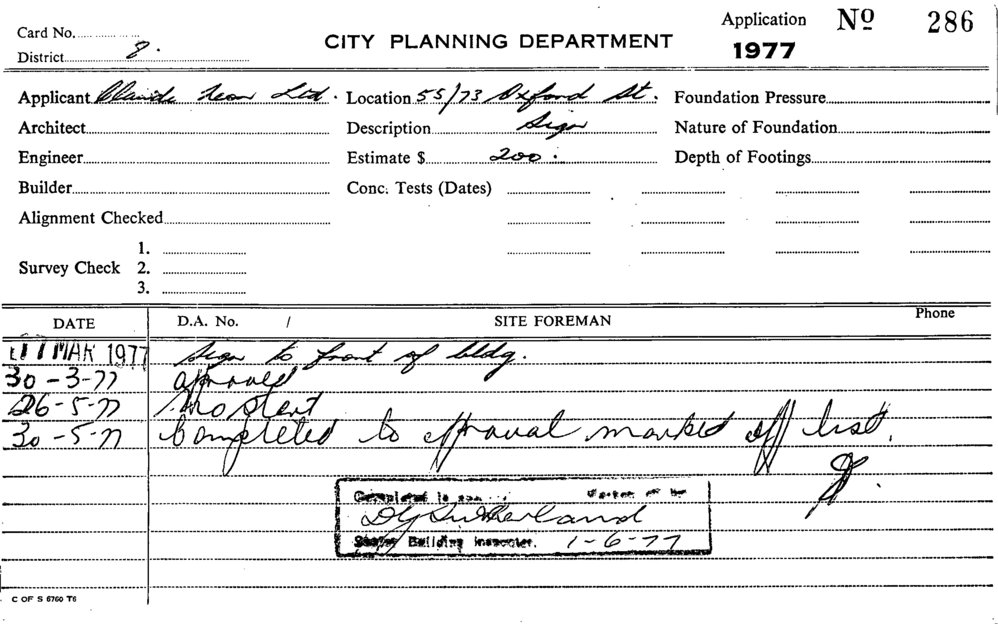 Card No.
Application No 286
CITY PLANNING DEPARTMENT
District 8.
1977
Applicant Claude Neon Ltd. Location 55/73 Oxford St. Foundation Pressure
Architect Description Sign Nature of Foundation
Engineer Estimate $ 200. Depth of Footings
Builder Conc. Tests (Dates)
Alignment Checked
1.
Survey Check 2.
3.
DATE D.A. No. / SITE FOREMAN Phone
MAR 1977 Sign to front of bldg.
30-3-77 approved
26-5-77 No start
30-5-77 Completed to approval marked off list.
Completed to Marked off by
D G Sutherland
Building Inspector. 1-6-77
C OF S 6760 T6